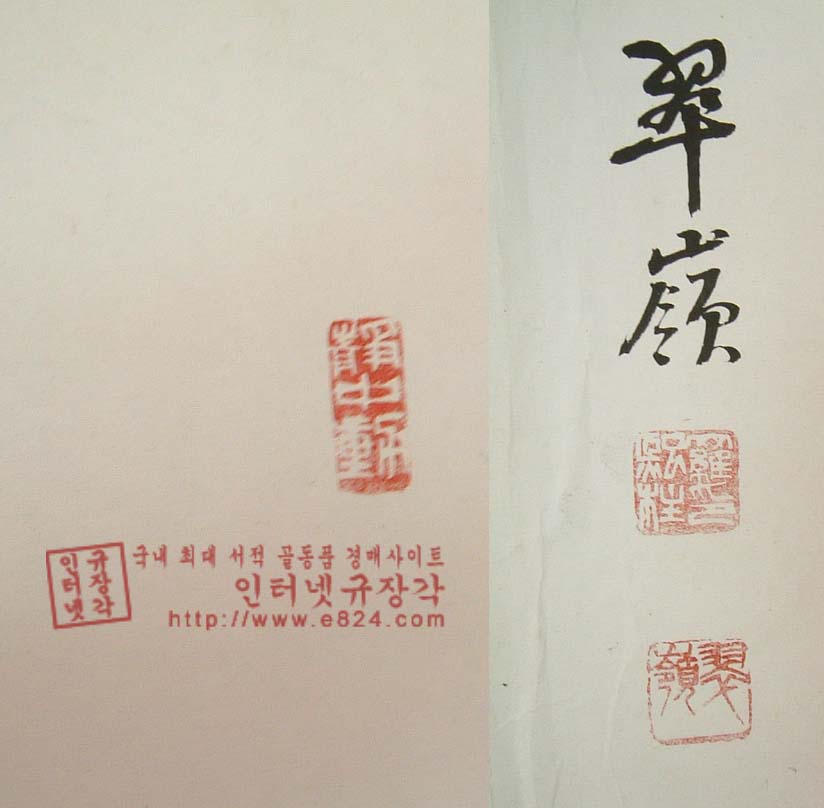 翠嶺
翠嶺
인터넷
규장각
국내 최대 서적 골동품 경매사이트
인터넷규장각
http://www.e824.com